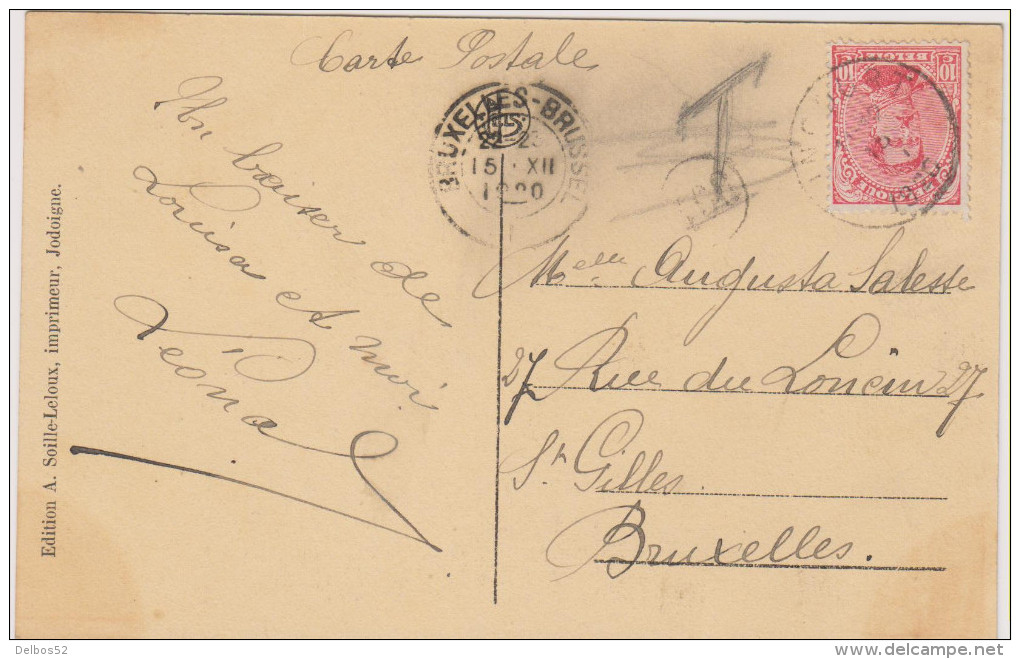 Carte Postale
Un baiser de
Louisa et moi
Léona
Edition A. Soille-Leloux, imprimeur, Jodoigne.
BRUXELLES-BRUSSEL
15 XII
1920
T
BELGIË
10 C 10
BELGIQUE
Melle Augusta Salesse
27 Rue du Loncin 27
St Gilles
Bruxelles.
Delbos52